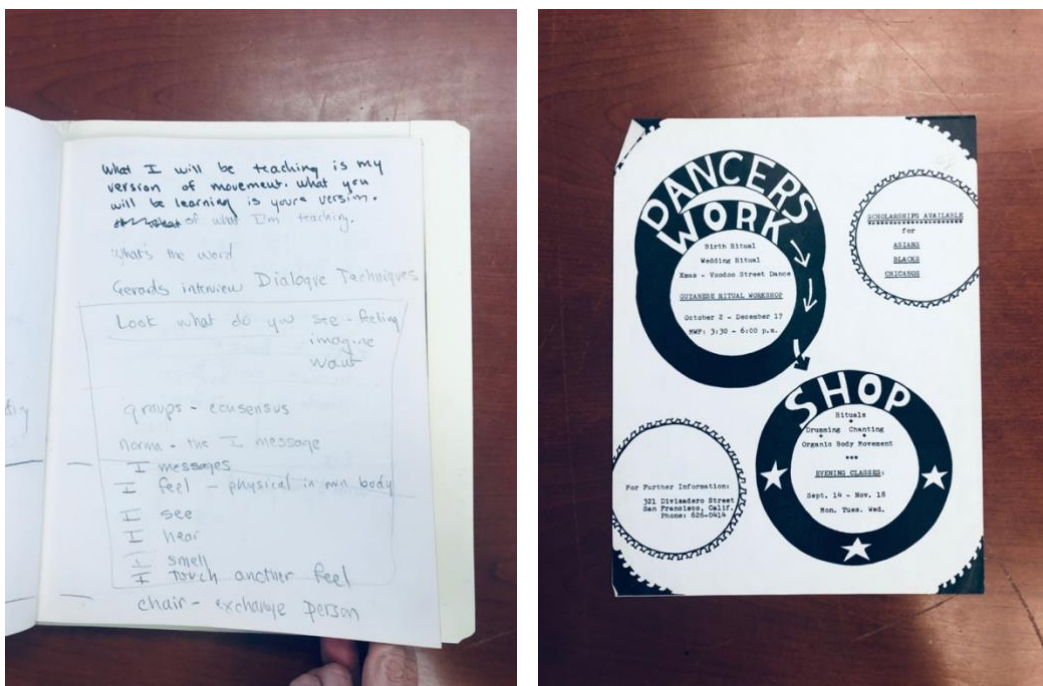 What I will be teaching is my
version of movement. what you
will be learning is youre version.
of what I'm teaching.
What's the word
Gerards interview Dialogve Techniques
Look what do you see - feeling
imagine
want
groups - ecusensus
norma - the I message
I messages
I feel - physical in own body
I see
I hear
I smell
I touch another feel
chair - exchange person
DANCERS
WORK
Birth Ritual
Wedding Ritual
Xmas - Voodoo Street Dance
GUIANESE RITUAL WORKSHOP
October 2 - December 17
MWF: 3:30 - 6:00 p.m.
SCHOLARSHIPS AVAILABLE
for
ASIANS
BLACKS
CHICANOS
SHOP
Rituals
Drumming Chanting
Organic Body Movement
***
EVENING CLASSES:
Sept. 14 - Nov. 18
Mon. Tues. Wed.
For Further Information:
321 Divisadero Street
San Francisco, Calif.
Phone: 626-0414